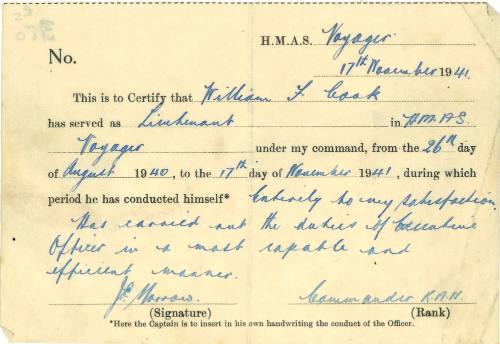 H.M.A.S. Voyager
No.
17th November 1941.
This is to Certify that William F Cook
has served as Lieutenant in H.M.A.S.
Voyager under my command, from the 26th day
of August 1940, to the 17th day of November 1941, during which
period he has conducted himself* Entirely to my satisfaction.
Has carried out the duties of Executive
Officer in a most capable and
efficient manner.
J Morrow. Commander R.A.N.
(Signature) (Rank)
*Here the Captain is to insert in his own handwriting the conduct of the Officer.